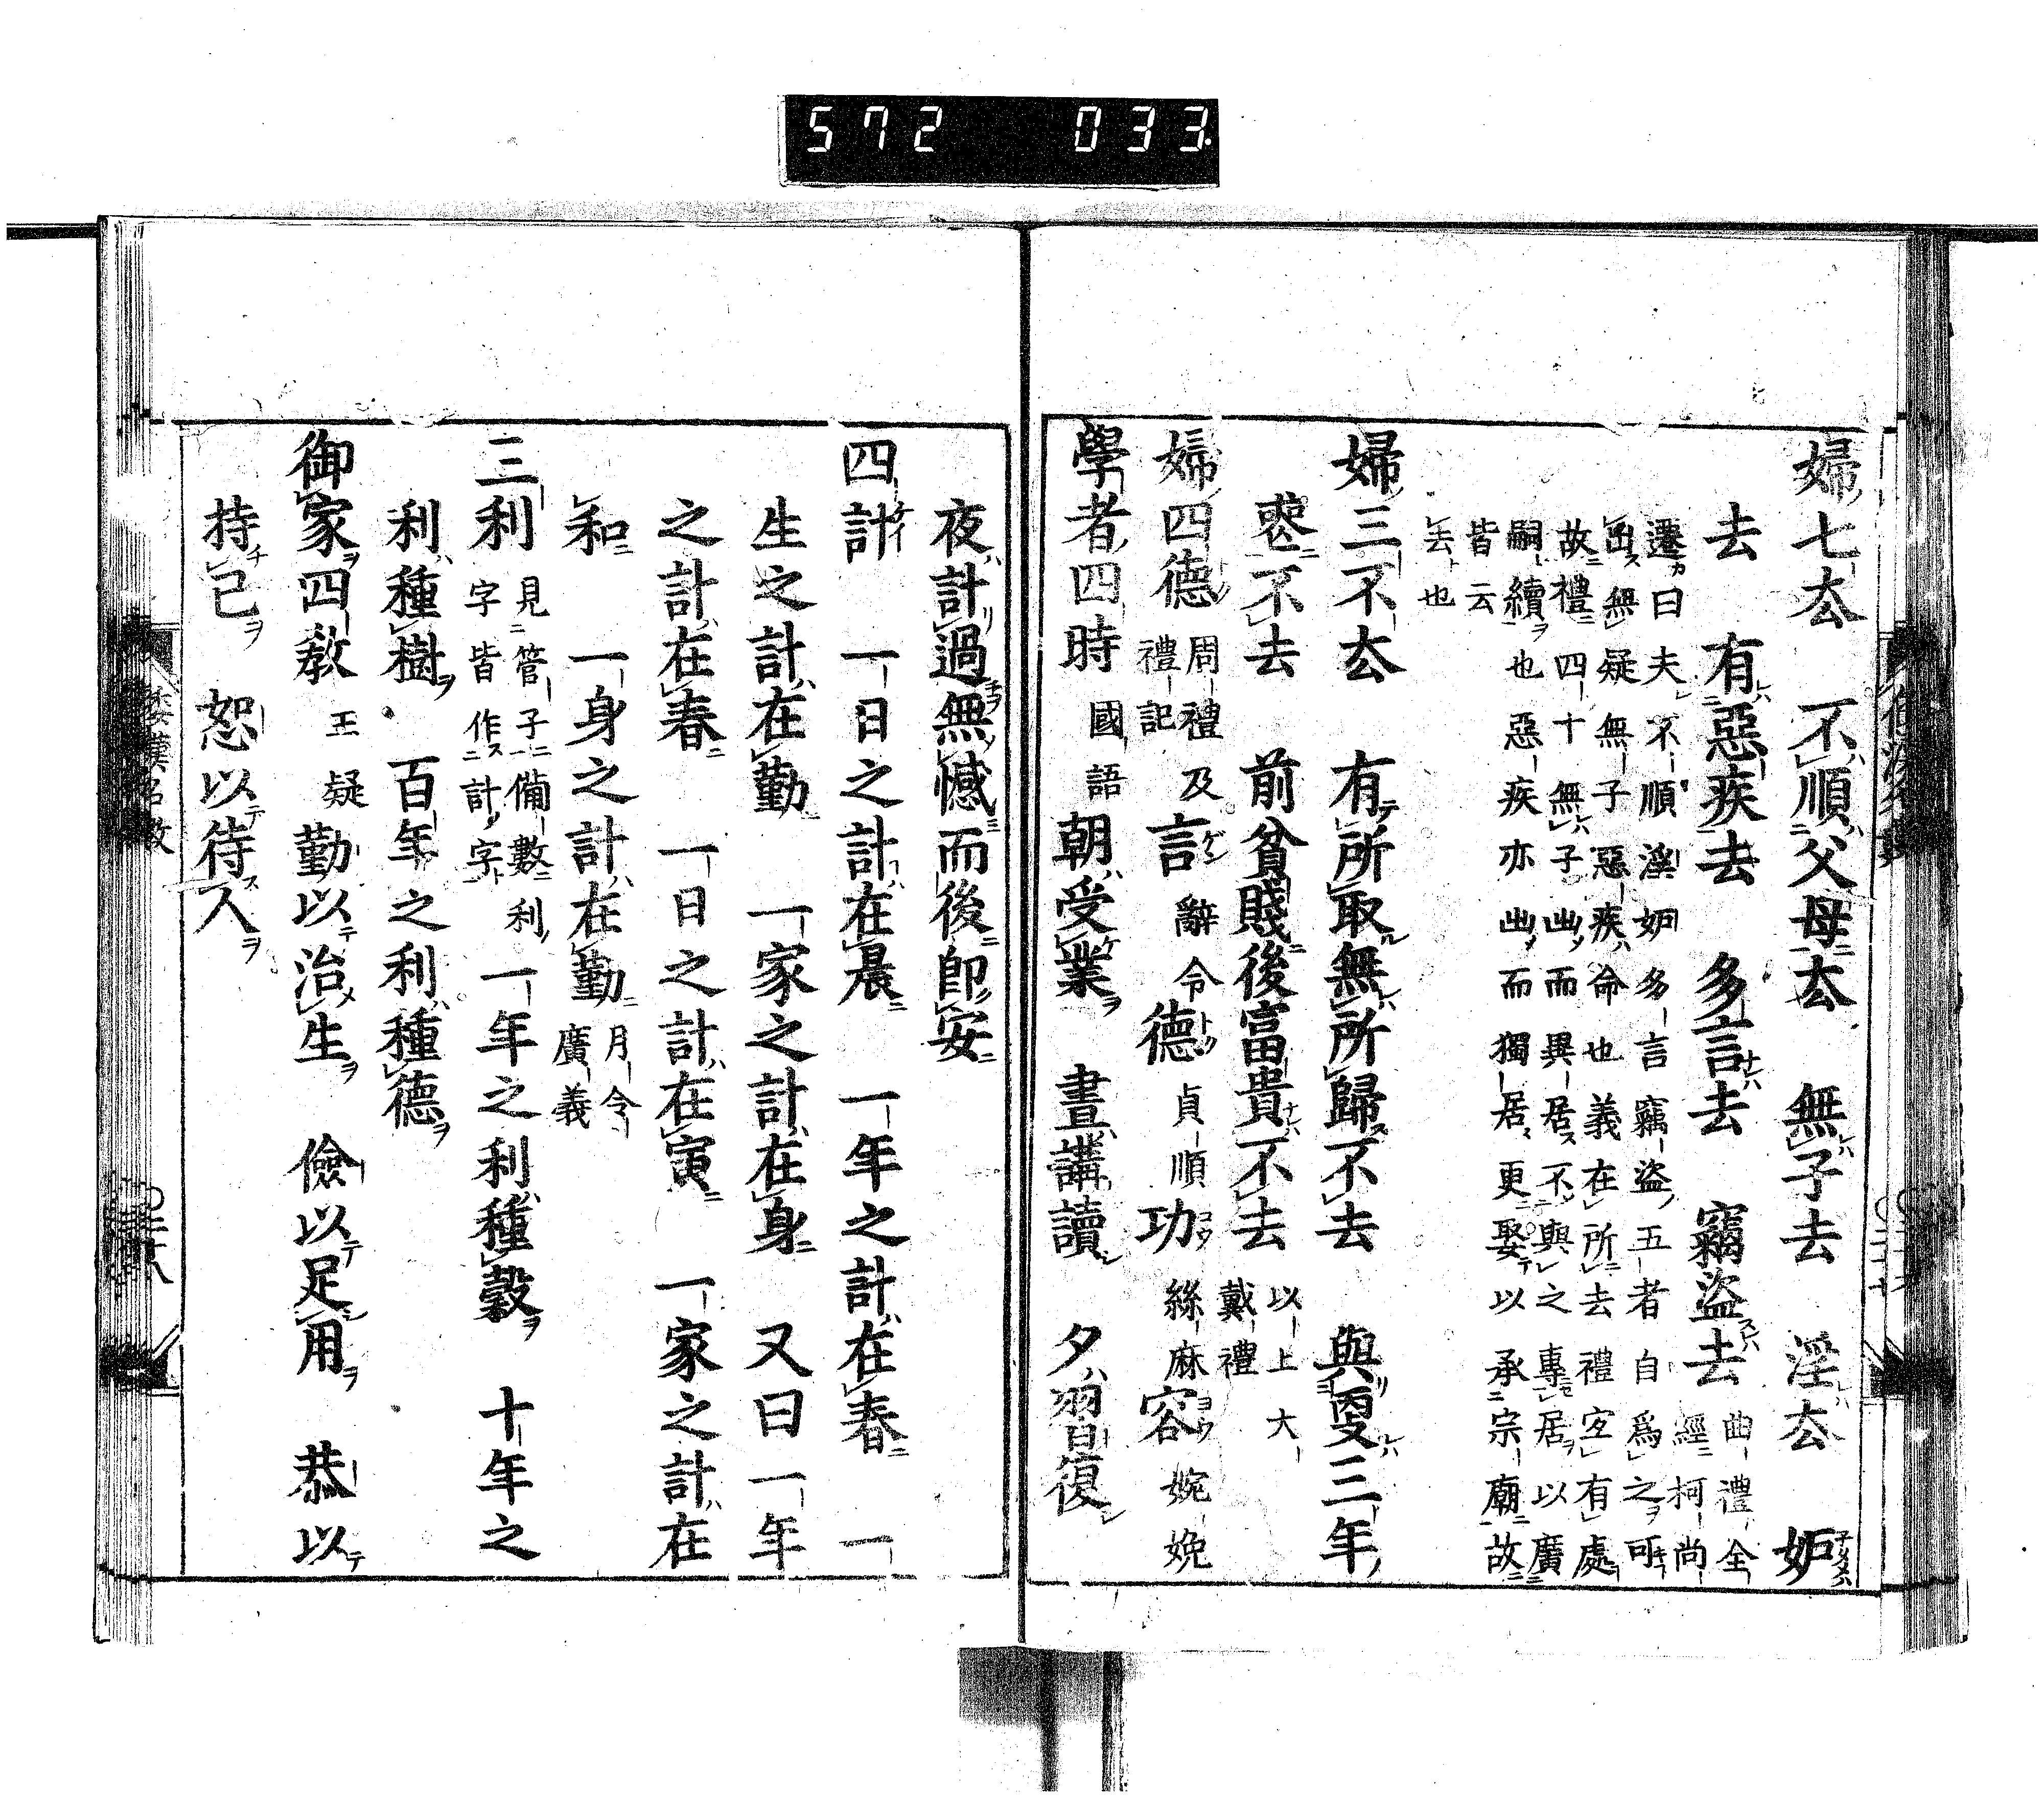 572 033
婦七厺　不順父母厺　無子去　淫厺　妬
去　有惡疾去　多言去　竊盜去
曲禮全
經柯尚
遷曰夫不順淫妬多言竊盜五者自爲之可
出無疑無子惡疾命也義在所去禮宜有處
故禮四十無子出而異居不與之專居以廣
嗣續也惡疾亦出而獨居更娶以承宗廟故
皆云
去也
婦三不厺　有所取無所歸不去　與更三年
喪不去　前貧賤後富貴不去
以上大
戴禮
婦四德
周禮及
禮記
言辭令德貞順功絲麻容婉娩
學者四時國語朝受業　晝講讀　夕習復
夜計過無憾而後卽安
四計　一日之計在晨　一年之計在春　一
生之計在勤　一家之計在身　又曰一年
之計在春　一日之計在寅　一家之計在
和　一身之計在勤
月令
廣義
三利
見管子備數利
字皆作計字
一年之利種穀　十年之
利種樹　百年之利種德
御家四教王疑勤以治生　儉以足用　恭以
持己　恕以待人